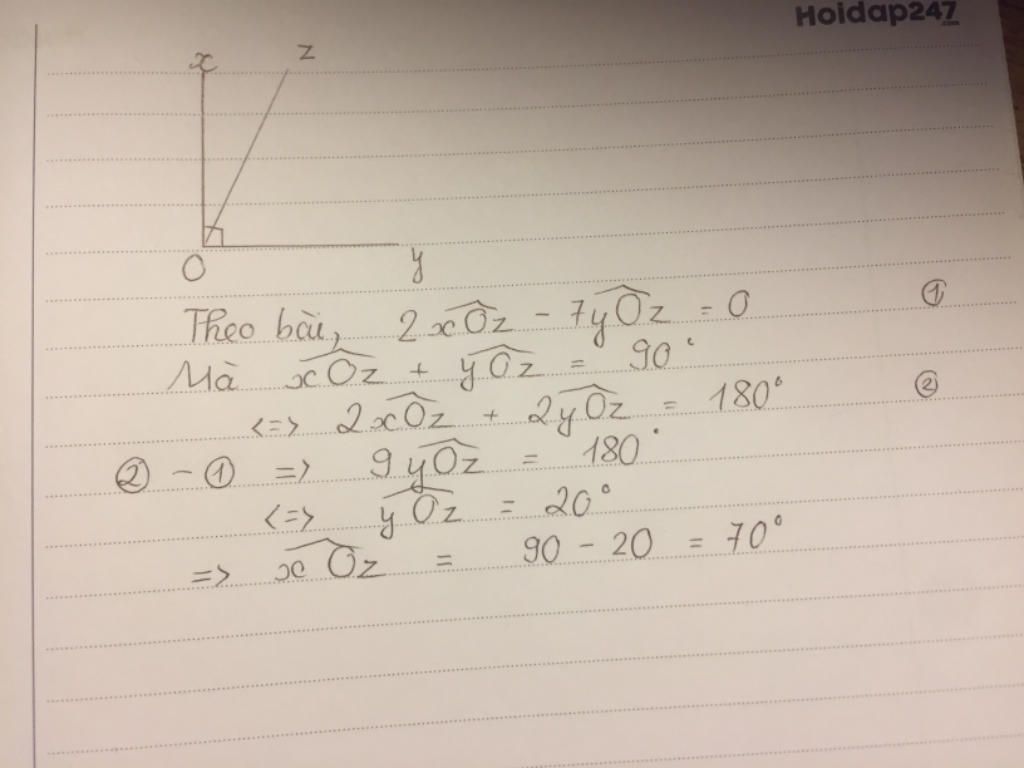 Hoidap247.com
x z
O y
Theo bài, 2 xOz - 7 yOz = 0 ①
Mà xOz + yOz = 90°
<=> 2 xOz + 2 yOz = 180° ②
② - ① => 9 yOz = 180°
<=> yOz = 20°
=> xOz = 90 - 20 = 70°